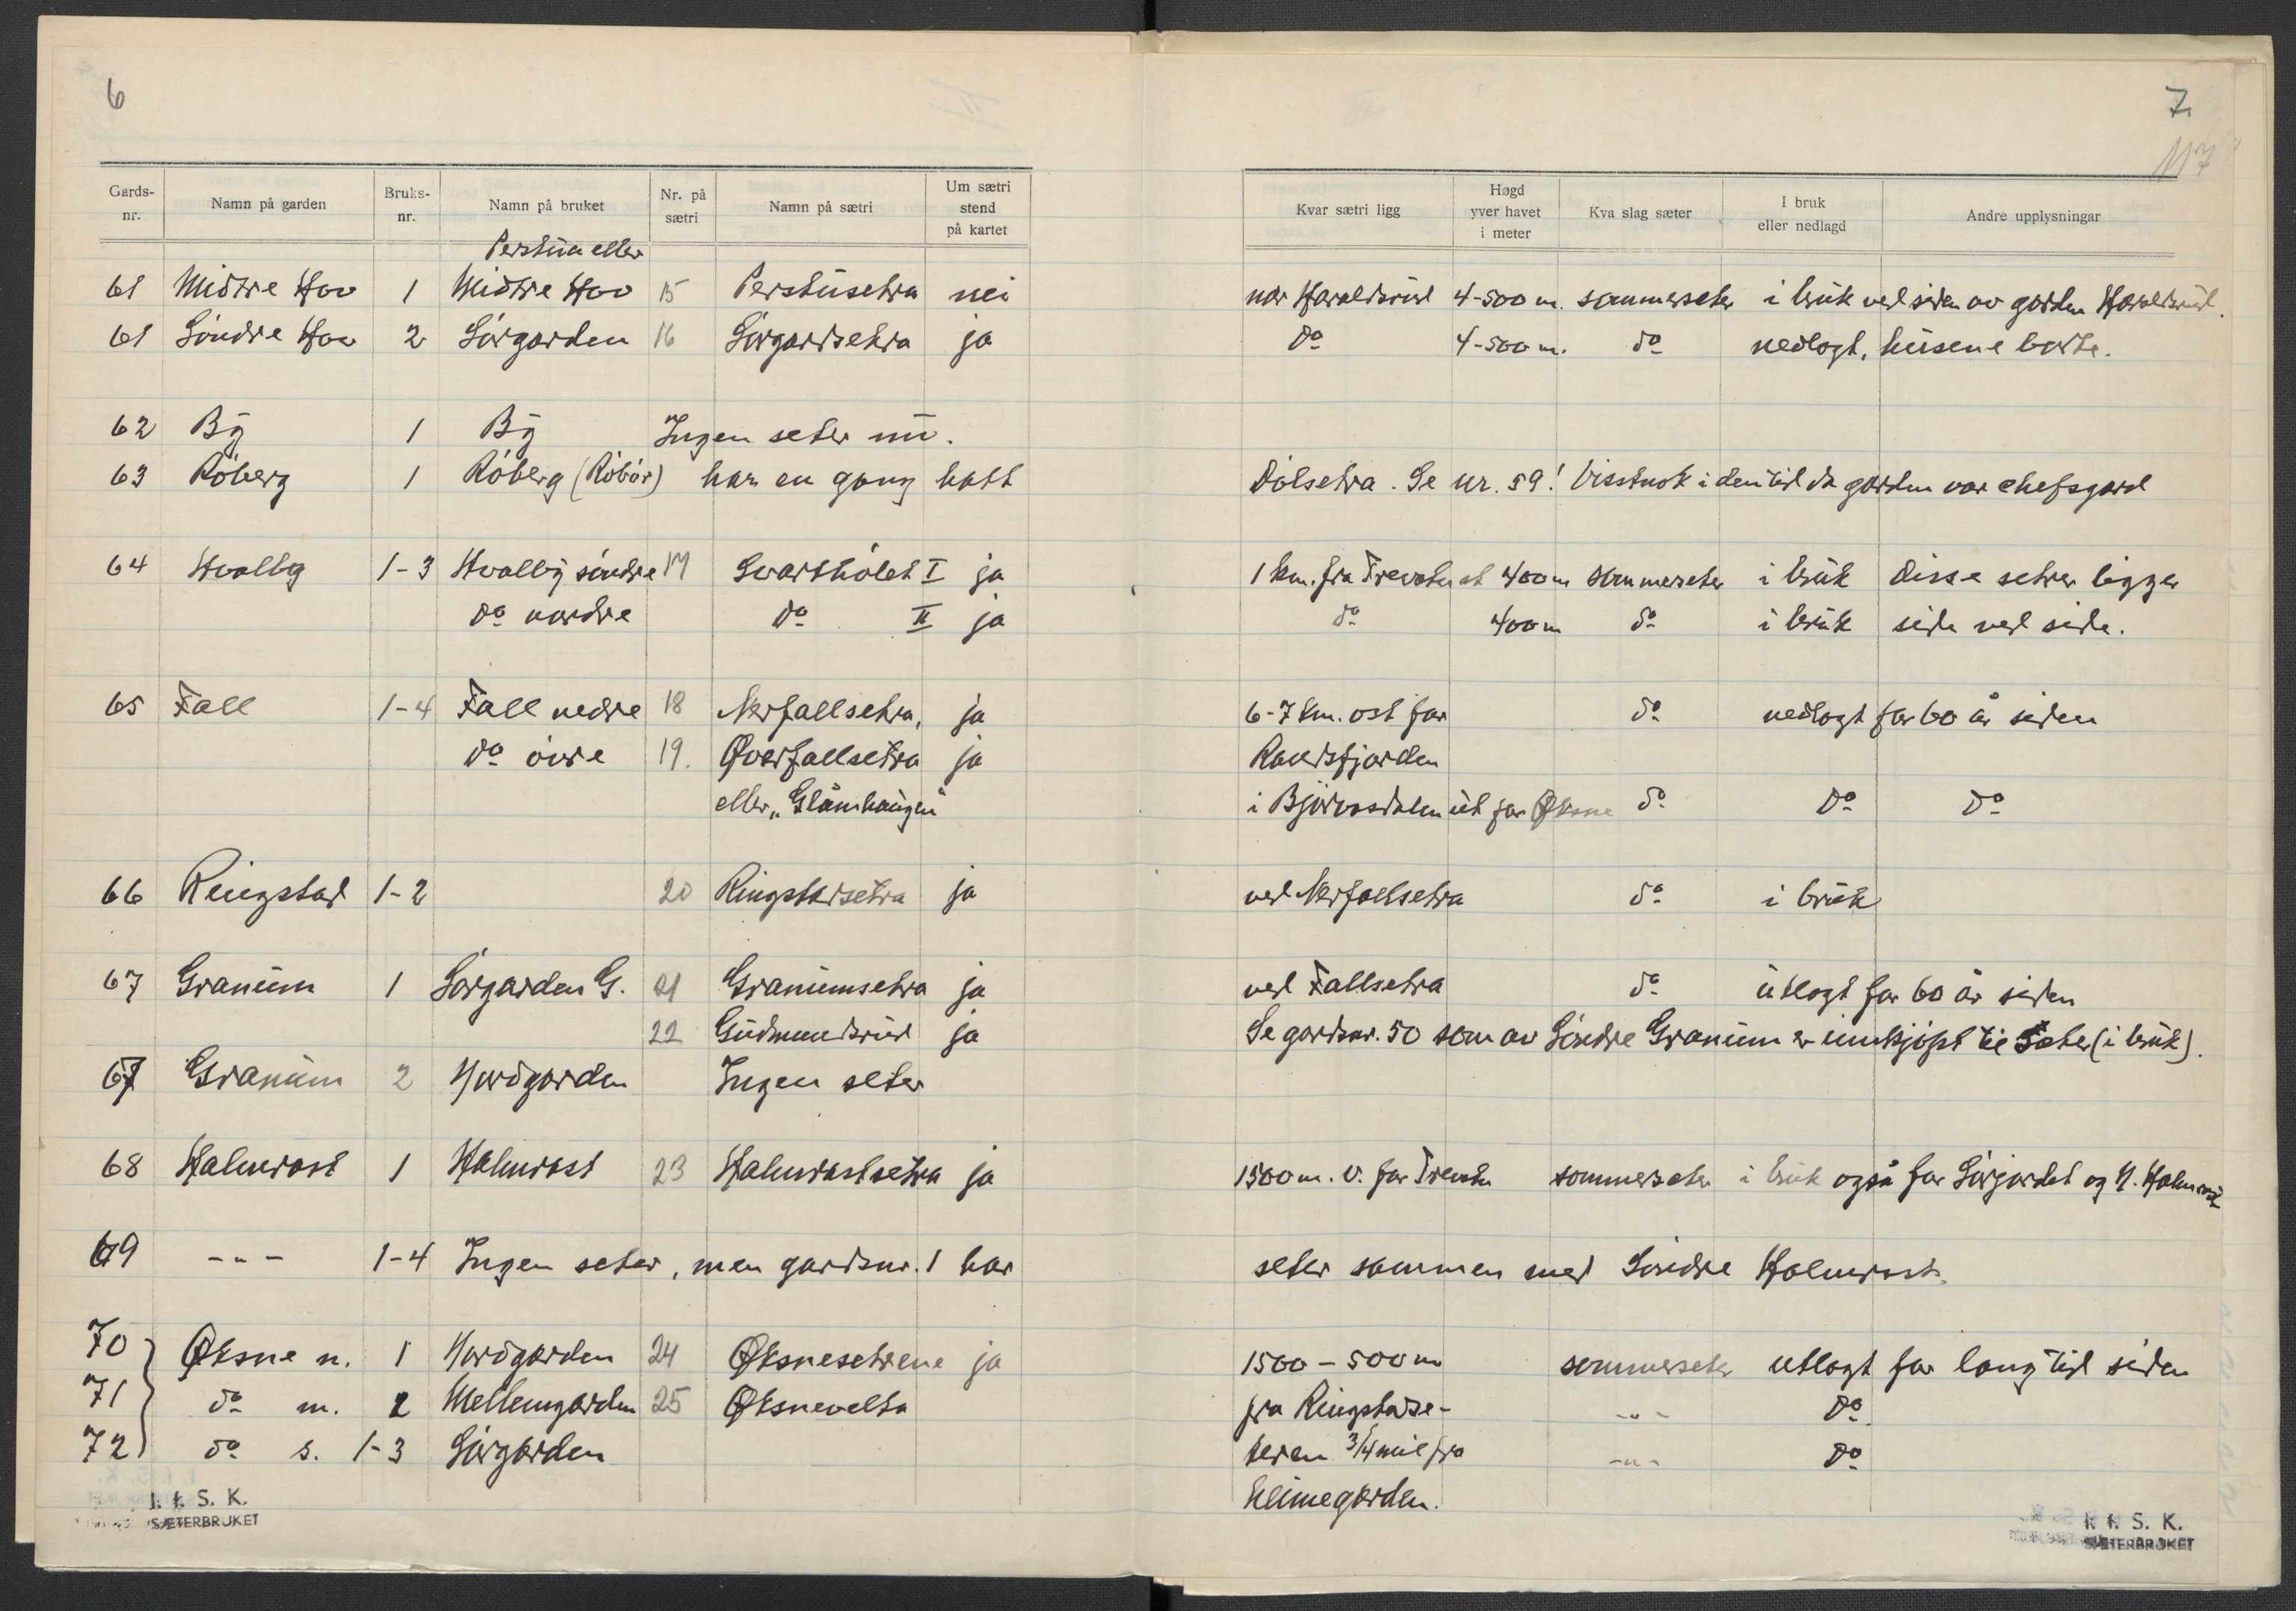 6
Gards-nr. Namn på garden Bruks-nr. Namn på bruket Nr. på sætri Namn på sætri Um sætri stend på kartet
Perstua eller
61 Midtre Hov 1 Midtre Hov 15 Perstusetra nei
61 Söndre Hov 2 Sörgarden 16 Sörgardsetra ja
62 By 1 By Ingen seter nu.
63 Röberg 1 Röberg (Röbör) har en gang hatt
64 Hvalby 1-3 Hvalby söndre 17 Svarthölet I ja
do nordre do II ja
65 Fall 1-4 Fall nedre 18 Nerfallsetra, ja
do övre 19. Øverfallsetra ja
eller „Glåmhaugen"
66 Ringstad 1-2 20 Ringstadsetra ja
67 Granum 1 Sörgarden G. 21 Granumsetra ja
22 Gudmundsrud ja
67 Granum 2 Nordgarden Ingen seter
68 Halmrast 1 Halmrast 23 Halmrastsetra ja
69 -"- 1-4 Ingen seter, men gardsnr. 1 har
70 Øksne n. 1 Nordgarden 24 Øksnesetrene ja
71 do m. 2 Mellemgarden 25 Øksnevelta
72 do s. 1-3 Sörgarden
I. f. S. K.
SÆTERBRUKET
7.
117
Kvar sætri ligg Høgd yver havet i meter Kva slag sæter I bruk eller nedlagd Andre upplysningar
nær Haraldsrud 4-500 m. sommerseter i bruk ved siden av garden Haraldsrud.
do 4-500 m. do nedlagt, husene borte.
Dölsetra. Se nr. 59! Visstnok i den tid da garden var chefsgard
1 km. fra Trevatn st 400 m sommerseter i bruk disse setrer ligger
do 400 m do i bruk side ved side.
6-7 km. öst for do nedlagt for 60 år siden
Randsfjorden
i Björvasdalen ut for Øksne do do do
ved Nerfallsetra do i bruk
ved Fallsetra do utlagt for 60 år siden
Se gardsnr. 50 som av Söndre Granum er innkjöpt til Seter (i bruk).
1500 m. v. for Trevatn sommerseter i bruk også for Sörjordet og N. Halmrast
seter sammen med Söndre Halmrast.
1500 - 500 m sommerseter utlagt for lang tid siden
fra Ringstadse- -"- do
teren 3/4 mil fra -"- do
heimegarden.
I. f. S. K.
SÆTERBRUKET